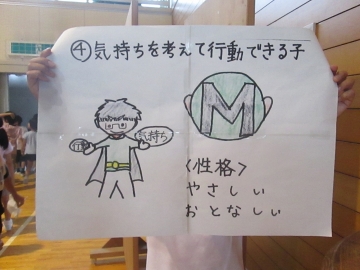 ④気持ちを考えて行動できる子
M
気持ち
〈性格〉
やさしい
おとなしい